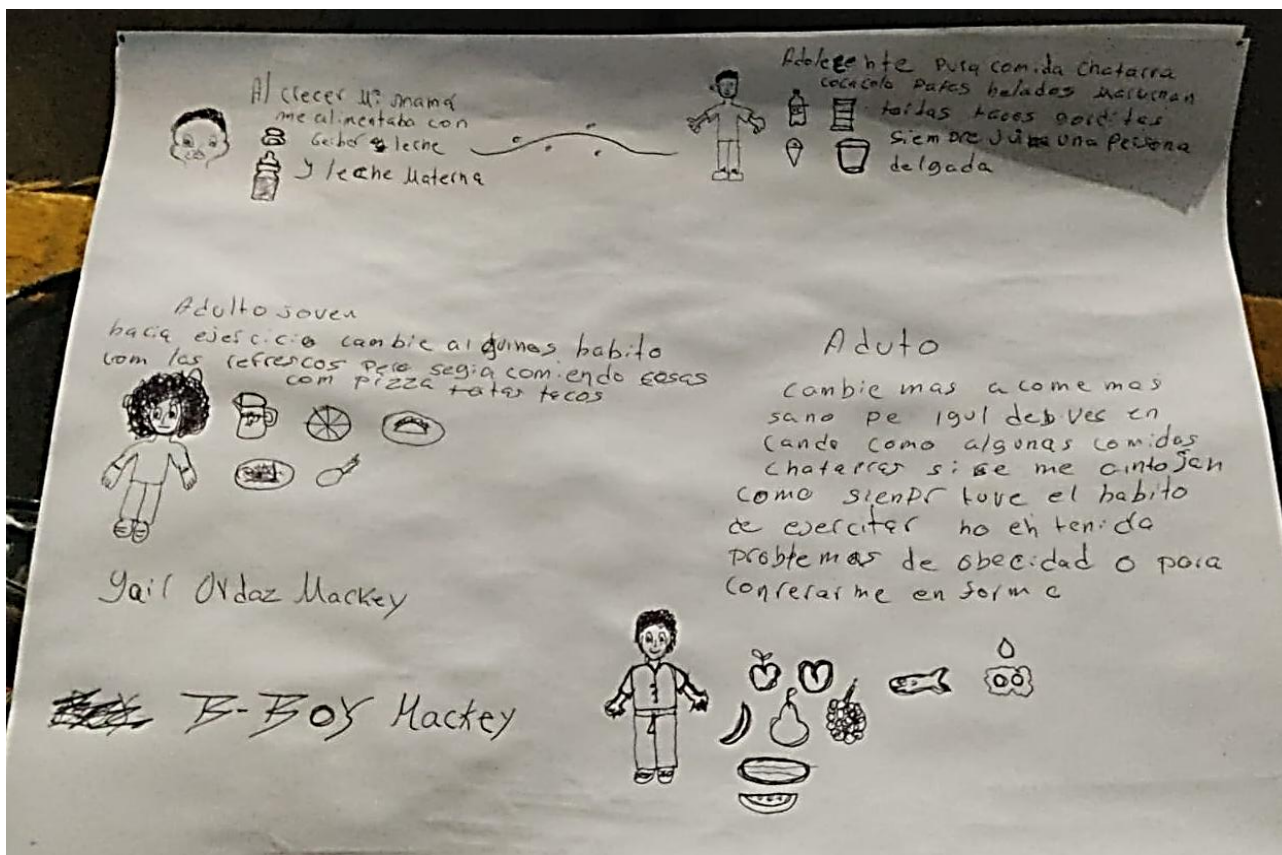 Al crecer mi mamá
me alimentaba con
leche
y leche Materna
Adolecente pura comida chatarra
cocacola papas helados
tortas tacos gorditas
siempre una persona
delgada
Adulto joven
hacia ejercicio cambie algunas habito
com las refrescos pero segia comiendo cosas
com pizza tacos
Yail Ordaz Mackey
B-Boy Mackey
Aduto
cambie mas a come mas
sano pe igul de ves en
cando como algunas comidas
chatarras si se me antojan
como sienpr tuve el habito
de ejercitar no eh tenida
problemas de obecidad o para
en forma